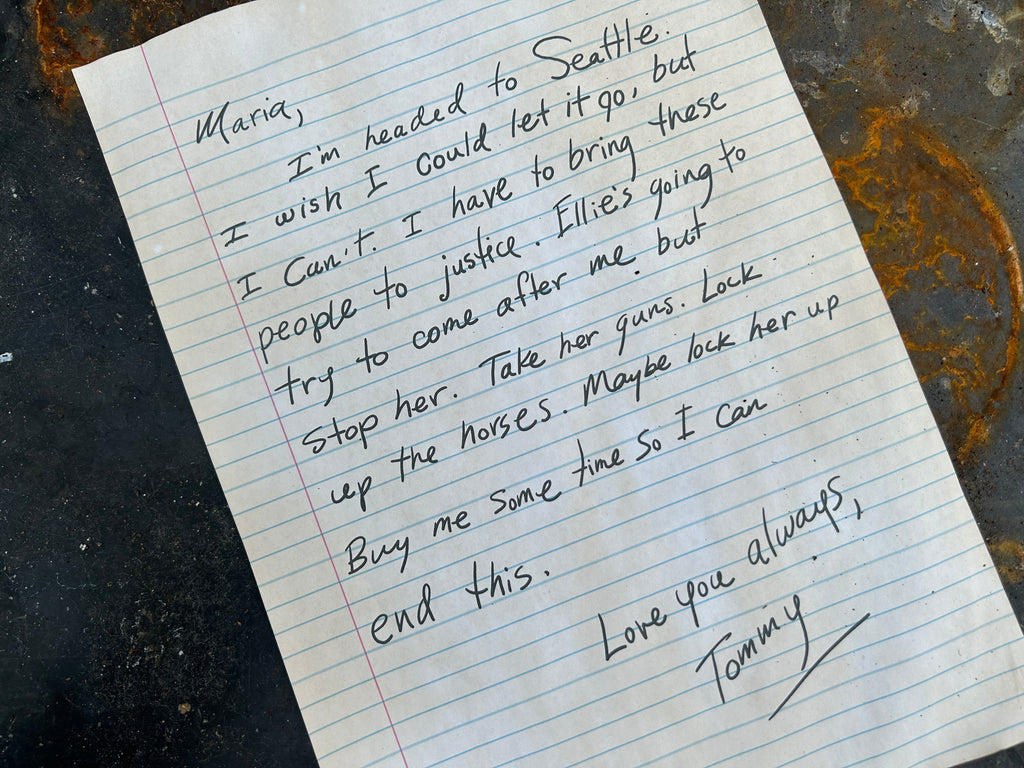 Maria,
I'm headed to Seattle.
I wish I could let it go, but
I Can't. I have to bring these
people to justice. Ellie's going to
try to come after me. but
Stop her. Take her guns. Lock
up the horses. Maybe lock her up
Buy me some time so I can
end this.
Love you always,
Tommy